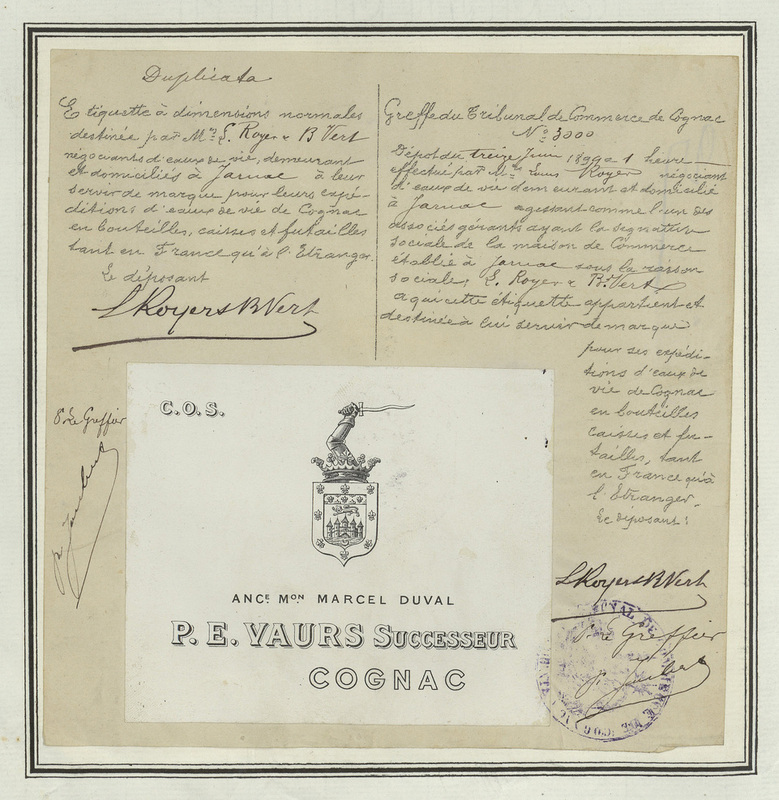 Duplicata
Etiquette à dimensions normales
destinée par Mrs L. Royer & B Vert
négociants d'eaux de vie, demeurant
et domiciliés à Jarnac à leur
servir de marque pour leurs expé-
ditions d'eaux de vie de Cognac
en bouteilles, caisses et futailles
tant en France qu'à l'Etranger.
Le déposant
L Royer & B Vert
Pr Le Greffier
Greffe du Tribunal de Commerce de Cognac
No 3000
Dépôt du treize Juin 1899 à 1 heure
effectué par Mr Louis Royer négociant
d'eaux de vie demeurant et domicilié
à Jarnac agissant comme l'un des
associés gérants ayant la signature
sociale de la maison de Commerce
établie à Jarnac sous la raison
sociale, L. Royer & B. Vert
à qui cette étiquette appartient et
destinée à lui servir de marque
pour ses expédi-
tions d'eaux de
vie de Cognac
en bouteilles
caisses et fu-
tailles, tant
en France qu'à
l'Etranger.
Le déposant:
L Royer & B Vert
Pr Le Greffier
C.O.S.
ANCE MON MARCEL DUVAL
P. E. VAURS SUCCESSEUR
COGNAC